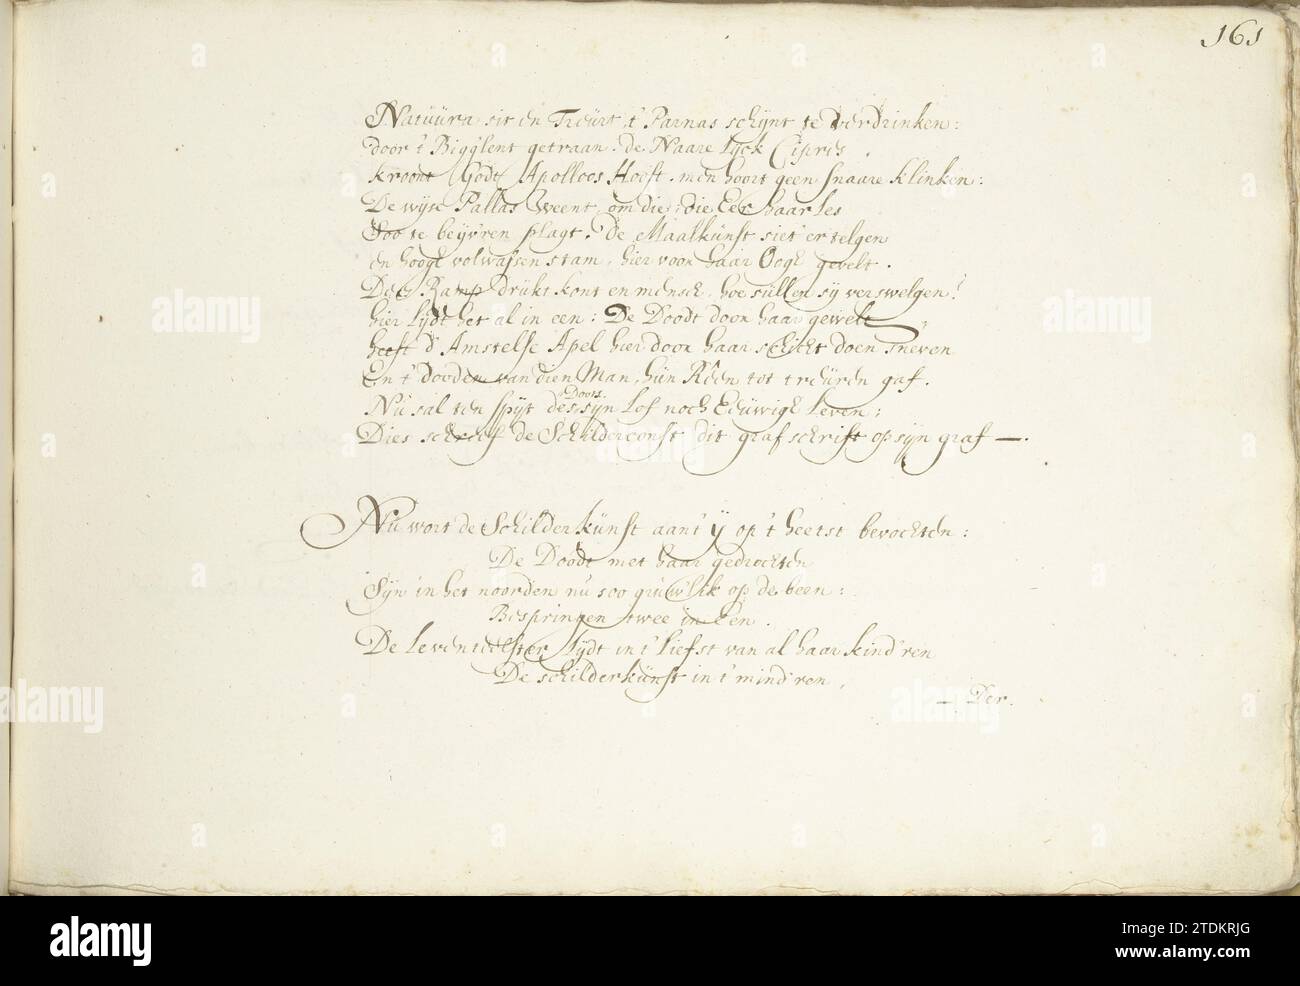 161
Natuura sit en Treurt, t' Parnas schijnt te verdrinken:
door 't Bigg'lent getraan. de Naare Lyck Cipres
kroont Godt Apolloos Hooft. men hoort geen snaare klinken:
De wijse Pallas Weent, om die, die Eer haar les
Soo te beijv'ren plagt. de Maalkunst siet er telgen
en hoogh volwassen stam, hier voor haar Oogh gevelt.
Dees Ramp drukt kont en mensch, hoe sullen sy verswelgen!
hier Lijdt het al in een: De Doodt door haar gewelt,
heeft d' Amstelse Apel hier door haar schicht doen sneven
En 't dooden van dien Man, hun Reên tot treuren gaf.
Nu sal ten spijt des Doots sijn Lof noch Eeuwigh Leven;
Dies schreef de Schilderconst dit grafschrift op sijn graf —.
Nu wort de Schilderkunst aan 't ÿ op 't heetst bevochten:
De Doodt met haar gedrochten
Sijn in het noorden nu soo gruwlik op de been:
Bespringen twee in Een.
De Leventeelster Lijdt in 't liefst van al haar kind'ren
De schilderkunst in 't mind'ren,
— Der.
alamy
Image ID: 2TDKRJG
www.alamy.com